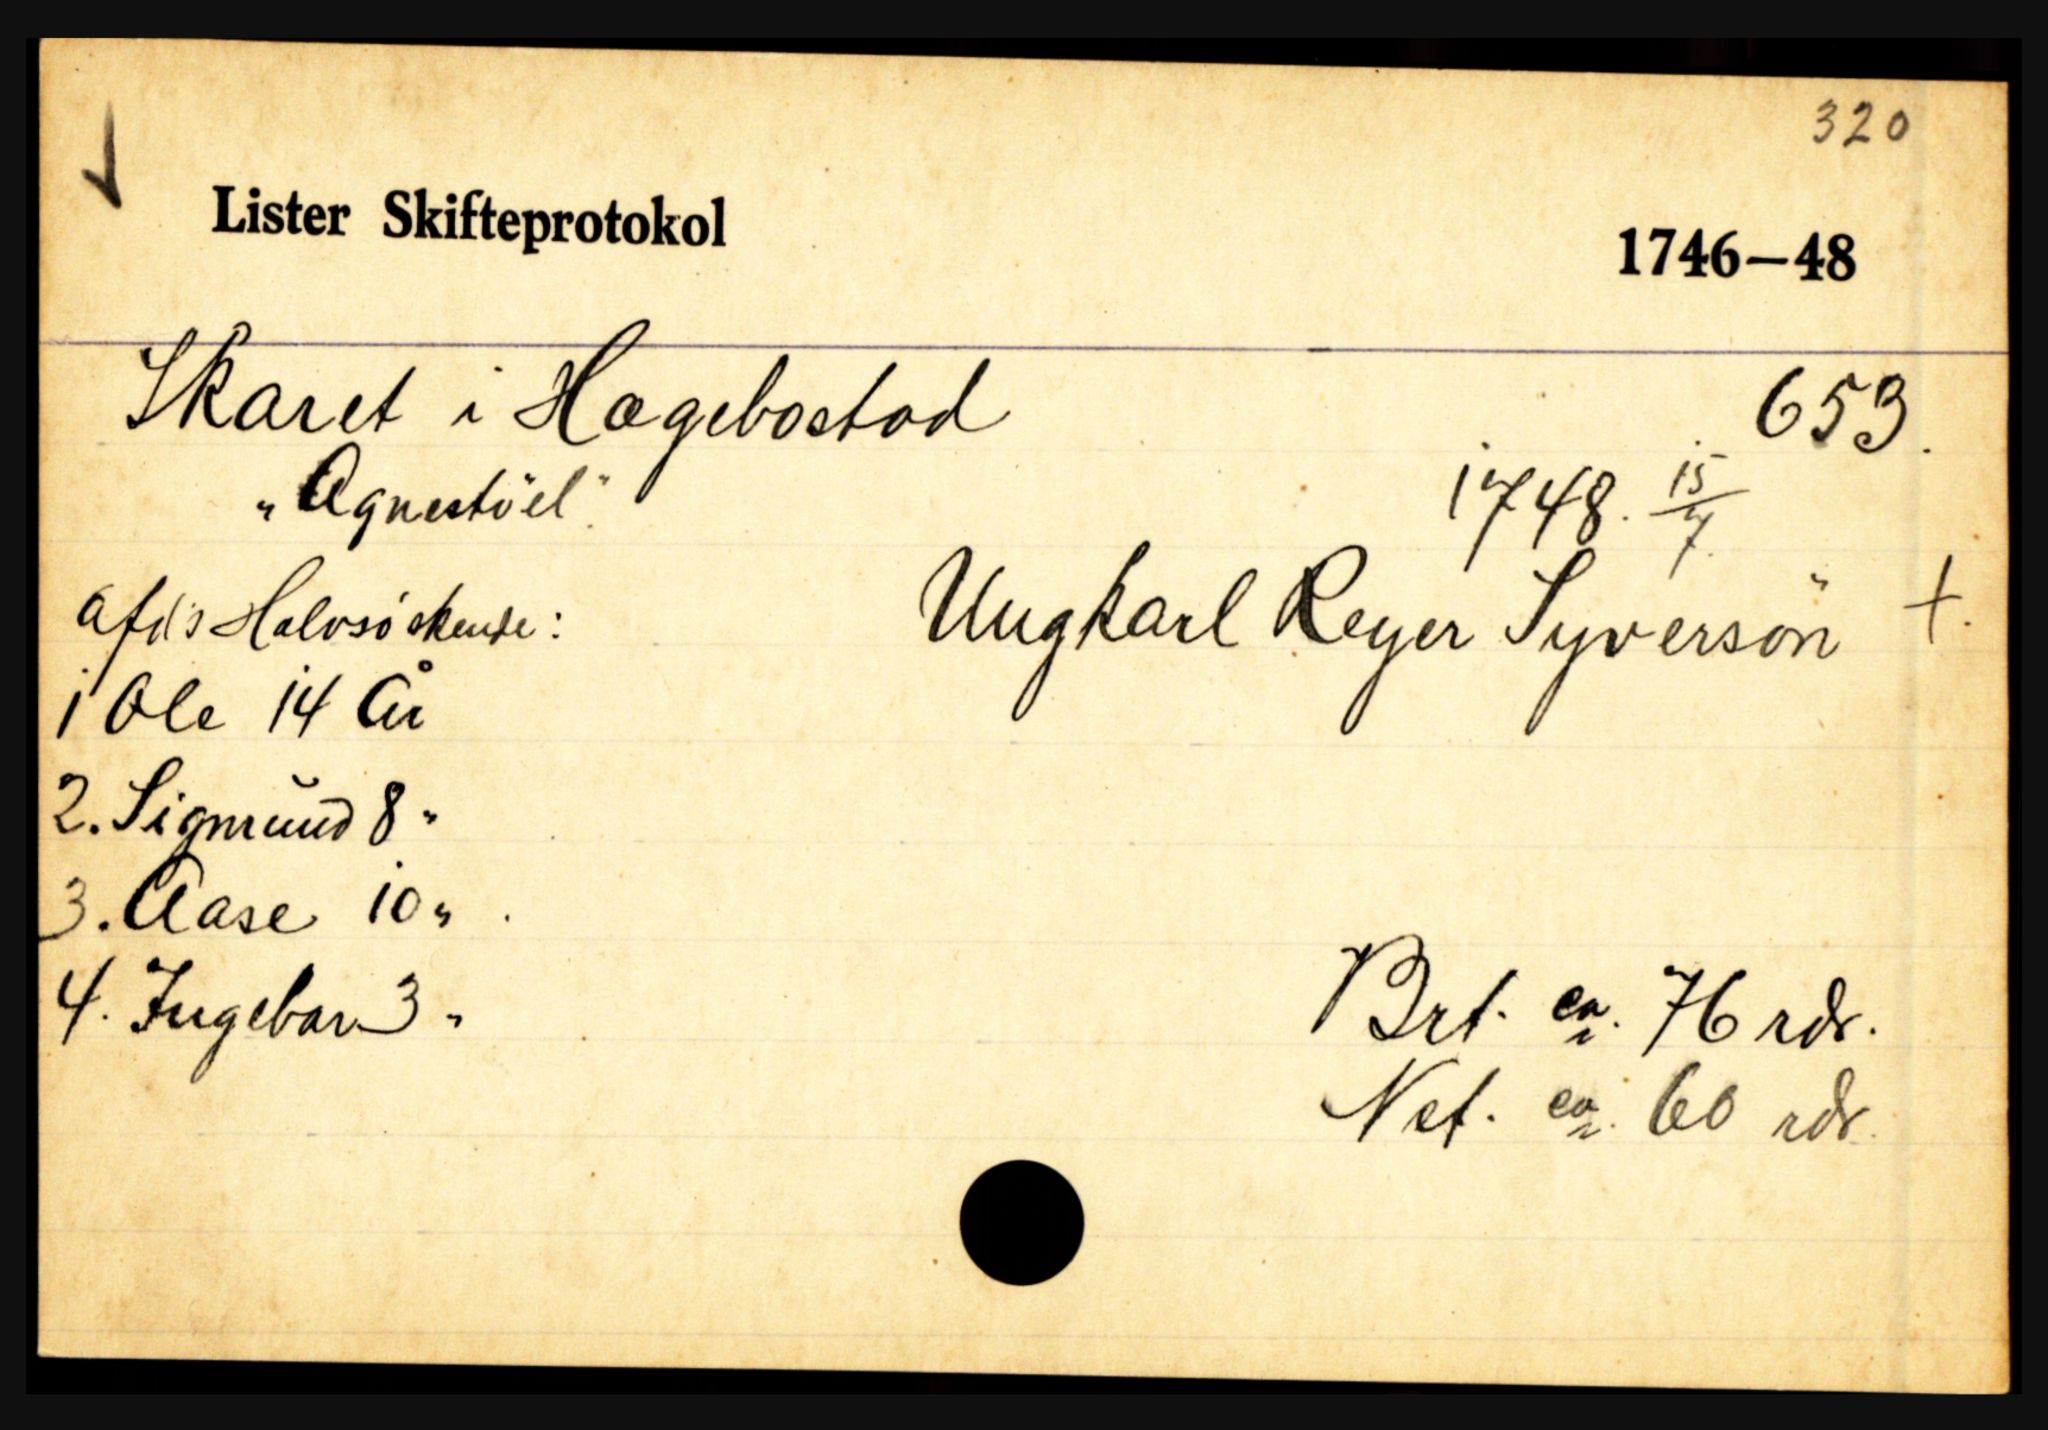 320
Lister Skifteprotokol 1746—48
Skaret i Hægebostad 653.
„Agnestöel"
1748. 15/7.
afd's Halvsöskende: Ungkarl Reyer Syversön +.
1 Ole 14 År
2. Sigmund 8 "
3. Aase 10 "
4. Ingebor 3 "
Brt. ca. 76 rdr.
Net. ca. 60 rdr.